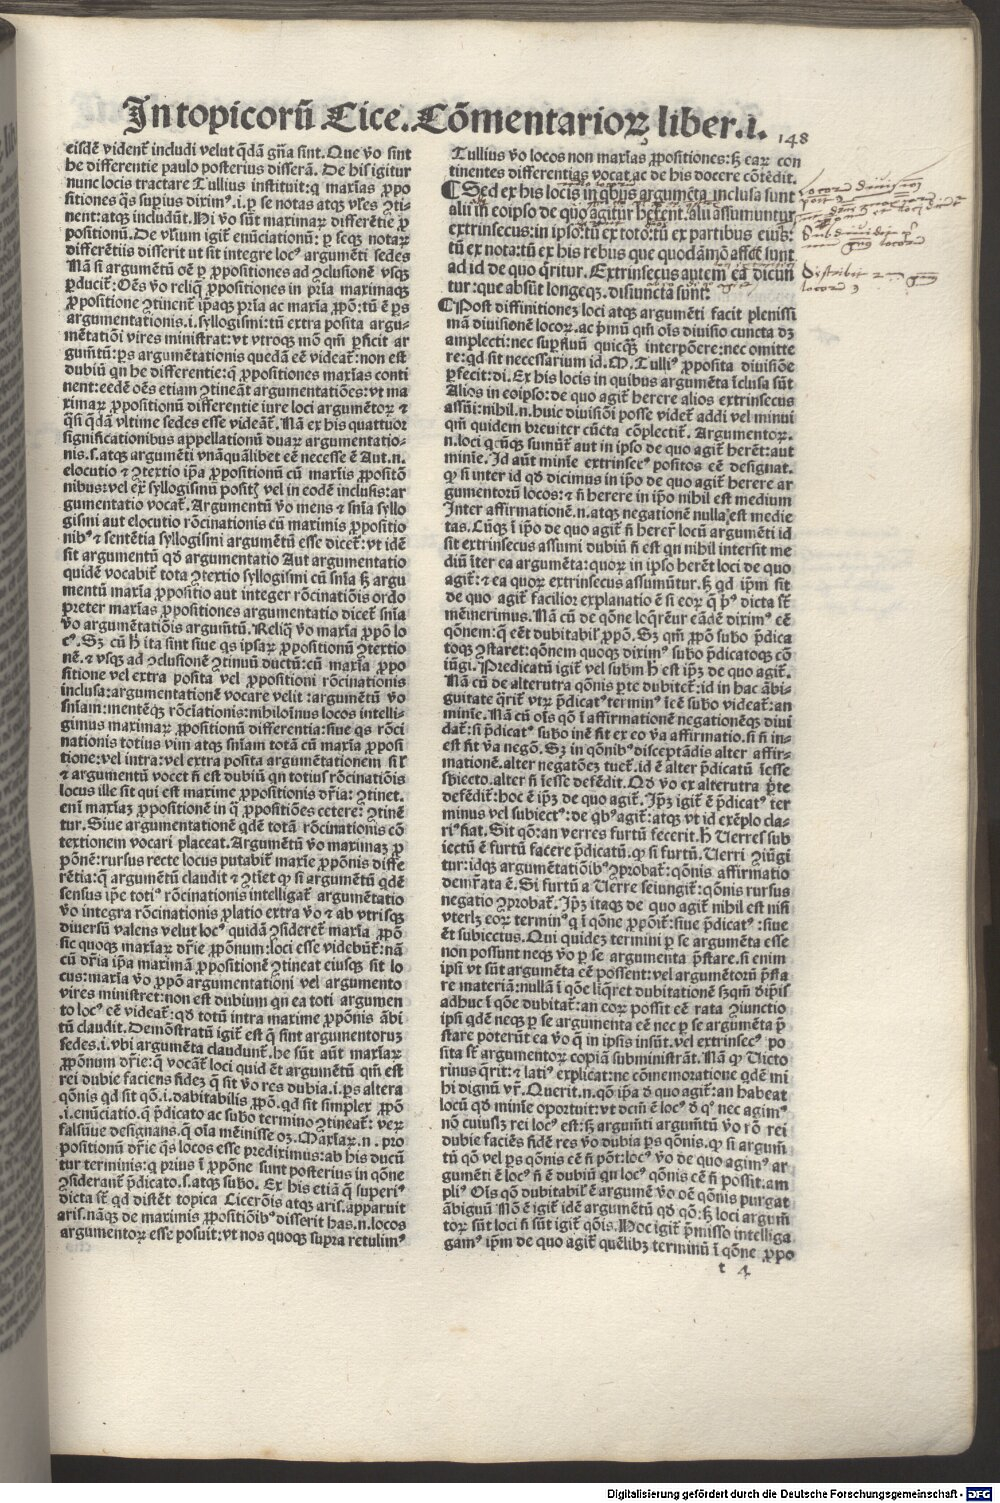 In topicorũ Cice. Cõmentarioꝝ liber. i.
148
eisdẽ vident̃ includi velut q̃dã gña sint. Que v̊o sint
he differentie paulo posterius disserã. De his igitur
nunc locis tractare Tullius instituit: q maxĩas ꝓpo
sitiones q̃s supius diximꝰ .i. ꝑ se notas atqꝫ vl̃es ꝯti-
nent: atqꝫ includũt. Hi v̊o sũt maximaꝝ differẽtie ꝓ
positionũ. De vlium igit̃ enũciationũ: ꝑ seqꝫ notaꝝ
differẽtiis disserit ut sit integre locꝰ argumẽti sedes
Nã si argumẽtũ oẽ ꝑ ꝓpositiones ad ꝯclusionẽ vsqꝫ
ꝑducit̃: Oẽs v̊o reliq̃ ꝓpositiones in pr̃ia maximaqꝫ
ꝓpositione ꝯtinent̃ ip̃aqꝫ pr̃ia ac maxĩa ꝓpõ: tũ ẽ ꝑs
argumentationis .i. syllogismi: tũ extra posita argu-
mẽtatiõi vires ministrat: vt vtroqꝫ mõ qm̃ ꝑficit ar
gum̃tũ: ꝑs argumẽtationis quedã eẽ videat̃: non est
dubiũ qn he differentie: q̃ ꝓpositiones maxĩas conti
nent: eedẽ oẽs etiam ꝯtineãt argumentatiões: vt ma
ximaꝝ ꝓpositionũ differentie iure loci argumẽtoꝝ ⁊
q̃si q̃dã vltime sedes esse videãt̃. Nã ex his quattuor
significationibus appellationũ duaꝝ argumentatio-
nis .s. atqꝫ argumẽti vnãquãlibet eẽ necesse ẽ Aut .n.
elocutio ⁊ ꝯtextio ip̃a ꝓpositionũ cũ maxĩis ꝓpositõ
nibus: vel ex̃ syllogismũ posit̃ vel in eodẽ inclusis: ar
gumentatio vocat̃. Argumentũ v̊o mens ⁊ sñia syllo
gismi aut elocutio rõcinationis cũ maximis ꝓpositio
nibꝰ ⁊ sentẽtia syllogismi argumẽtũ esse dicet̃: vt idẽ
sit argumentũ qđ argumentatio Aut argumentatio
quidẽ vocabit̃ tota ꝯtextio syllogismi cũ sñia sꝫ argu
mentũ maxĩa ꝓpositio aut integer rõcinatiõis ordo
preter maxĩas ꝓpositiones argumentatio dicet̃ sñia
v̊o argumẽtatiõis argum̃tũ. Reliq̃ v̊o maxĩa ꝓpõ lo
cꝰ. Sꝫ cũ h̃ ita sint siue q̃s ipsaꝝ ꝓpositionũ ꝯtextio
nẽ. ⁊ vsqꝫ ad ꝯclusionẽ ꝯtinuũ ductũ: cũ maxĩa ꝓpo
sitione vel extra posita vel ꝓpositioni rõcinationis
inclusa: argumentationẽ vocare velit: argumẽtũ v̊o
sñiam: mentẽqꝫ rõciationis: nihilomĩnus locos intelli-
gimus maximaꝝ ꝓpositionũ differentia: siue q̃s rõci
nationis totius vim atqꝫ sñiam totã cũ maxĩa ꝓposi
tione: vel intra: vel extra posita argumẽtationem si l̃
⁊ argumentũ vocet ñ est dubiũ qn totius rõcinatiõis
locus ille sit qui est maxime ꝓpositionis dr̃ia: ꝯtinet.
enĩ maxĩaꝫ ꝓpositionẽ in q̃ ꝓpositiões cetere: ꝯtinẽ
tur. Siue argumentationẽ qdẽ totã rõcinationis cõ
textionem vocari placeat. Argumẽtũ v̊o maximaꝫ ꝓ
põnẽ: rursus recte locus putabit̃ maxĩe ꝓpõnis diffe
rẽtia: q̃ argumẽtũ claudit ⁊ ꝯtinet qꝫ si argumẽtũ qdẽ
sensus ip̃e totiꝰ rõcinationis intelligat̃ argumẽtatio
v̊o integra rõcinationis ꝓlatio extra v̊o ⁊ ab vtrisqꝫ
diuersũ valens velut locꝰ quidã ꝯsideret̃ maxĩa ꝓpõ
sic quoqꝫ maxĩaꝝ dr̃ie ꝓpõnum: loci esse videbũt̃: nã
cũ dr̃ia ip̃a maximã ꝓpositionẽ ꝯtineat eiusqꝫ sit lo
cus: maxĩa v̊o ꝓpõ argumentationi vel argumento
vires ministret: non est dubium qn ea toti argumen
to locꝰ eẽ videat̃: qđ totũ intra maxime ꝓpõnis ãbi
tũ claudit. Demõstratũ igit̃ est q̃ sint argumentoruꝫ
sedes .i. vbi argumẽta claudunt̃. he sũt aũt maxĩaꝝ
ꝓpõnum dr̃ie: q̃ vocãt̃ loci quid ẽt argumẽtũ qm̃ est
rei dubie faciens fidẽꝫ q̃ sit v̊o res dubia .i. ꝑs altera
qõnis qđ sit qõ .i. dabitabilis ꝓpõ. qđ sit simplex ꝓpõ
.i. enũciatio. q̃ p̃dicato ac subo termino ꝯtineat̃: veꝝ
falsũue designans. q̃ oĩa mẽinisse oꝫ. Maxĩaꝝ .n. pro
positionũ dr̃ie q̃s locos esse prediximus: ab his ducũ
tur terminis: q prius ĩ ꝓpõne sunt posterius in qõne
ꝯsiderant̃ p̃dicato .s. atqꝫ subo. Ex his etiã q̃ superiꝰ
dicta st̃ qđ distẽt topica Cicerõis atqꝫ aris. apparuit
aris. nãqꝫ de maximis ꝓpositiõibꝰ disserit has .n. locos
argumentoꝝ esse posuit: vt nos quoqꝫ supra retulimꝰ
Tullius v̊o locos non maxĩas ꝓpositiones: sꝫ eaꝝ con
tinentes differentias vocat ac de his docere cõtẽdit.
¶ Sed ex his locis in qbꝰis argumẽta inclusa sunt
alii iñ eoipso de quo agitur herent. alii assumuntur
extrinsecus: in ipso: tũ ex toto: tũ ex partibus eius:
tũ ex nota: tũ ex his rebus que quodãmõ affect̃ sunt
ad id de quo q̃ritur. Extrinsecus autem ea dicun
tur: que absũt longeqꝫ. disiuncta sunt.
¶ Post diffinitioneꝫ loci atqꝫ argumẽti facit plenissi
mã diuisionẽ locoꝝ. ac p̃mũ qm̃ oĩs diuisio cuncta dꝫ
amplecti: nec suꝑfluũ quicq̃ꝫ interpõere: nec omitte
re: qđ sit necessarium id. M. Tulliꝰ ꝓposita diuisiõe
ꝑfecit: di. Ex his locis in quibus argumẽta ĩclusa sũt
Alios in eoipso: de quo agit̃ herere alios extrinsecus
assũi: nihil .n. huic diuisiõi posse videt̃ addi vel minui
qm̃ quidem breuiter cũcta cõplectit̃. Argumentoꝝ.
n. loci qcũqꝫ sumũt̃ aut in ipso de quo agit̃ herẽt: aut
minĩe. Id aũt minĩe extrinsecꝰ positos eẽ designat.
qꝫ si inter id qđ dicimus in ip̃o de quo agit̃ herere ar
gumentorũ locos: ⁊ ñ herere in ip̃o nihil est medium
Inter affirmationẽ .n. atqꝫ negationẽ nulla est medie
tas. Cũqꝫ ĩ ip̃o de quo agit̃ ñ herer̃ locũ argumẽti id
sit extrinsecus assumi dubiũ ñ est qn nihil intersit me
diũ ĩter ea argumẽta: quoꝝ in ipso herẽt loci de quo
agit̃: ⁊ ea quoꝝ extrinsecus assumũtur. sꝫ qđ ip̃m sit
de quo agit̃ facilior explanatio ẽ si eoꝝ q̃ p̃ꝰ dicta st̃
mẽnerimus. Nã cũ de qõne loq̃remur eãdẽ diximꝰ eẽ
qõnem: q̃ eẽt dubitabil̃ ꝓpõ. Sꝫ qm̃ ꝓpõ subo p̃dica
toqꝫ ꝯstaret: qõnem quoqꝫ diximꝰ subo p̃dicatoqꝫ cõ
iũgi. Predicatũ igit̃ vel subm̃ h̃ est ip̃ꝫ de quo agit̃.
Nã cũ de alterutra qõnis ꝑte dubitet̃: id in hac ãbi-
guitate q̃rit̃ vtꝝ p̃dicatꝰ terminꝰ ĩeẽ subo videat̃: an
minĩe. Nã cũ oĩs qõ ĩ affirmationẽ negationẽqꝫ diui
dat̃: si p̃dicatꝰ subo inẽ fit ex eo v̊a affirmatio. si ñ in-
est fit v̊a negõ. Sꝫ in qõnibꝰ disceptãdis alter affir-
mationẽ. alter negatõeꝫ tuet̃. id ẽ alter p̃dicatũ ĩesse
sbiecto. alter ñ ĩesse defẽdit. Qđ v̊o ex alterutra ꝑte
defẽdit̃: hoc ẽ ip̃ꝫ de quo agit̃. Ip̃ꝫ igit̃ ẽ p̃dicatꝰ ter
minus vel subiectꝰ: de q̃bꝰ agit̃: atqꝫ vt id exẽplo cla-
riꝰ fiat. Sit qõ: an verres furtũ fecerit. h̃ Uerres sub
iectũ ẽ furtũ facere p̃dicatũ. qꝫ si furtũ. Uerri ꝯiũgi
tur: idqꝫ argumẽtatiõibꝰ ꝯprobat̃: qõnis affirmatio
demr̃ata ẽ. Si furtũ a Uerre seiungit̃: qõnis rursus
negatio ꝯprobat̃. Ip̃ꝫ itaqꝫ de quo agit̃ nihil est nisi
vterlꝫ eoꝝ terminꝰ q ĩ qõne ꝓpõit̃: siue p̃dicatꝰ: siue
ẽt subiectus. Qui quideꝫ termini ꝑ se argumẽta esse
non possunt neqꝫ v̊o ꝑ se argumenta p̃stare. si enim
ipsi vt sũt argumẽta eẽ possent: vel argumẽtorũ p̃sta
re materiã: nullã ĩ qõe liq̃ret dubitationẽ sꝫqm̃ dip̃is
adhuc ĩ qõe dubitat̃: an eoꝝ possit eẽ rata ꝯiunctio
ipsi qdẽ neqꝫ ꝑ se argumenta eẽ nec ꝑ se argumẽta p̃
stare poterũt ea v̊o q̃ in ipsis insũt. vel extrinsecꝰ po
sita st̃ argumentoꝝ copiã subministrãt. Nã qꝫ Victo
rinus q̃rit: ⁊ latiꝰ explicat: ne cõmemoratione qdẽ mi
hi dignũ vr̃. Querit .n. qõ ip̃a đ quo agit̃: an habeat
locũ qđ minĩe oportuit: vt dcm̃ ẽ locꝰ đ qꝰ nec agimꝰ
nõ cuiusꝫ rei locꝰ est: sꝫ argum̃ti argum̃tũ v̊o rõ rei
dubie faciẽs fidẽ res v̊o dubia ꝑs qõnis. qꝫ si argum̃
tũ qõ vel ꝑs qõnis eẽ ñ põt: locꝰ v̊o de quo agimꝰ ar
gumẽti ẽ locꝰ ñ ẽ dubiũ qn locꝰ qõnis eẽ ñ possit. am
pliꝰ Oĩs qõ dubitabil̃ ẽ argumẽ v̊o oẽ qõnis purgat
ãbiguũ Nõ ẽ igit̃ idẽ argumẽtũ qđ qõ: sꝫ loci argum̃
toꝝ sũt loci ñ sũt igit̃ qõis. Hoc igit̃ p̃misso intelliga
gamꝰ ip̃m de quo agit̃ quẽlibꝫ terminũ ĩ qõne ꝓpo
t 4
Digitalisierung gefördert durch die Deutsche Forschungsgemeinschaft - DFG